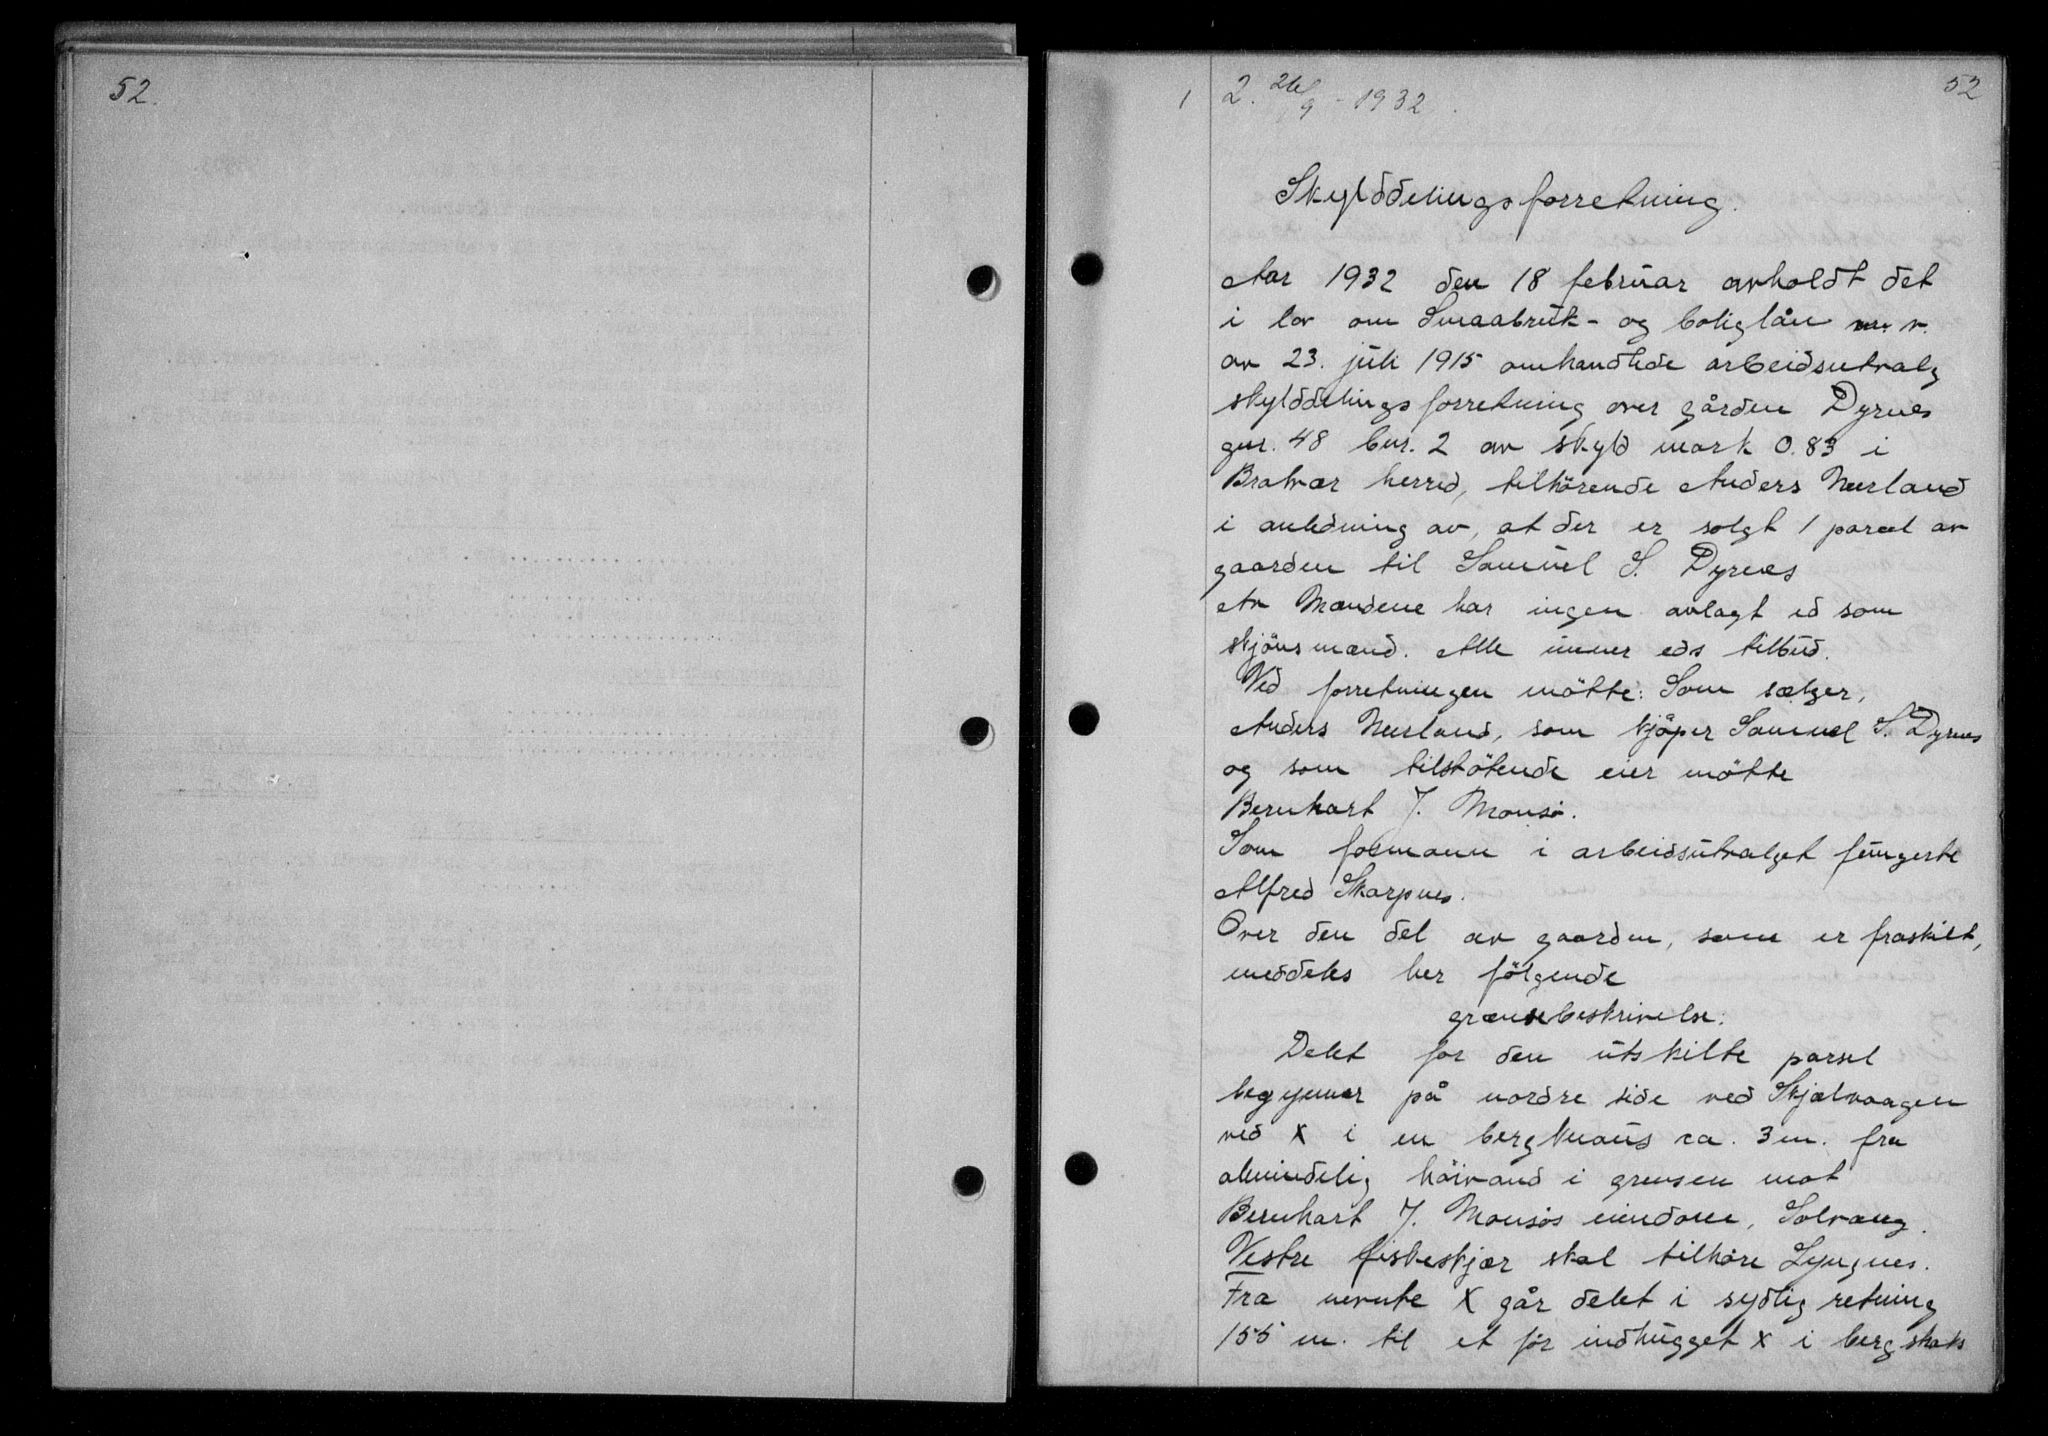 52.
1 2. 26/9 - 1932. 52
Skylddelingsforretning.
Aar 1932 den 18 februar avholdt det
i lov om Smaabruk- og boliglån m.v.
av 23. juli 1915 omhandlede arbeidsutvalg
skylddelingsforretning over gården Dyrnes
gnr. 48 bnr. 2 av skyld mark 0.83 i
Bratvær herred, tilhörende Anders Neerland
i anledning av, at der er solgt 1 parcel av
gaarden til Samuel S. Dyrnes
Av Mændene har ingen avlagt ed som
skjönsmænd. Alle unner eds tilbud.
Ved forretningen mötte: Som sælger,
Anders Neerland, som kjöper Samuel S. Dyrnes
og som tilstötende eier mötte
Bernhart J. Monsö.
Som formann i arbeidsutvalget fungerte
Alfred Skarpnes.
Over den del av gaarden, som er fraskilt,
meddeles her fölgende
grænsebeskrivelse:
Delet for den utskilte parsel
begynner på nordre side ved Skjælvaagen
ved X i en bergknaus ca. 3 m. fra
almindelig höivand i grensen mot
Bernhart J. Monsös eiendom, Solvang.
Vestre fiskeskjær skal tilhöre Lyngnes.
Fra nevnte X går delet i sydlig retning
155 m. til et för indhugget x i berg straks